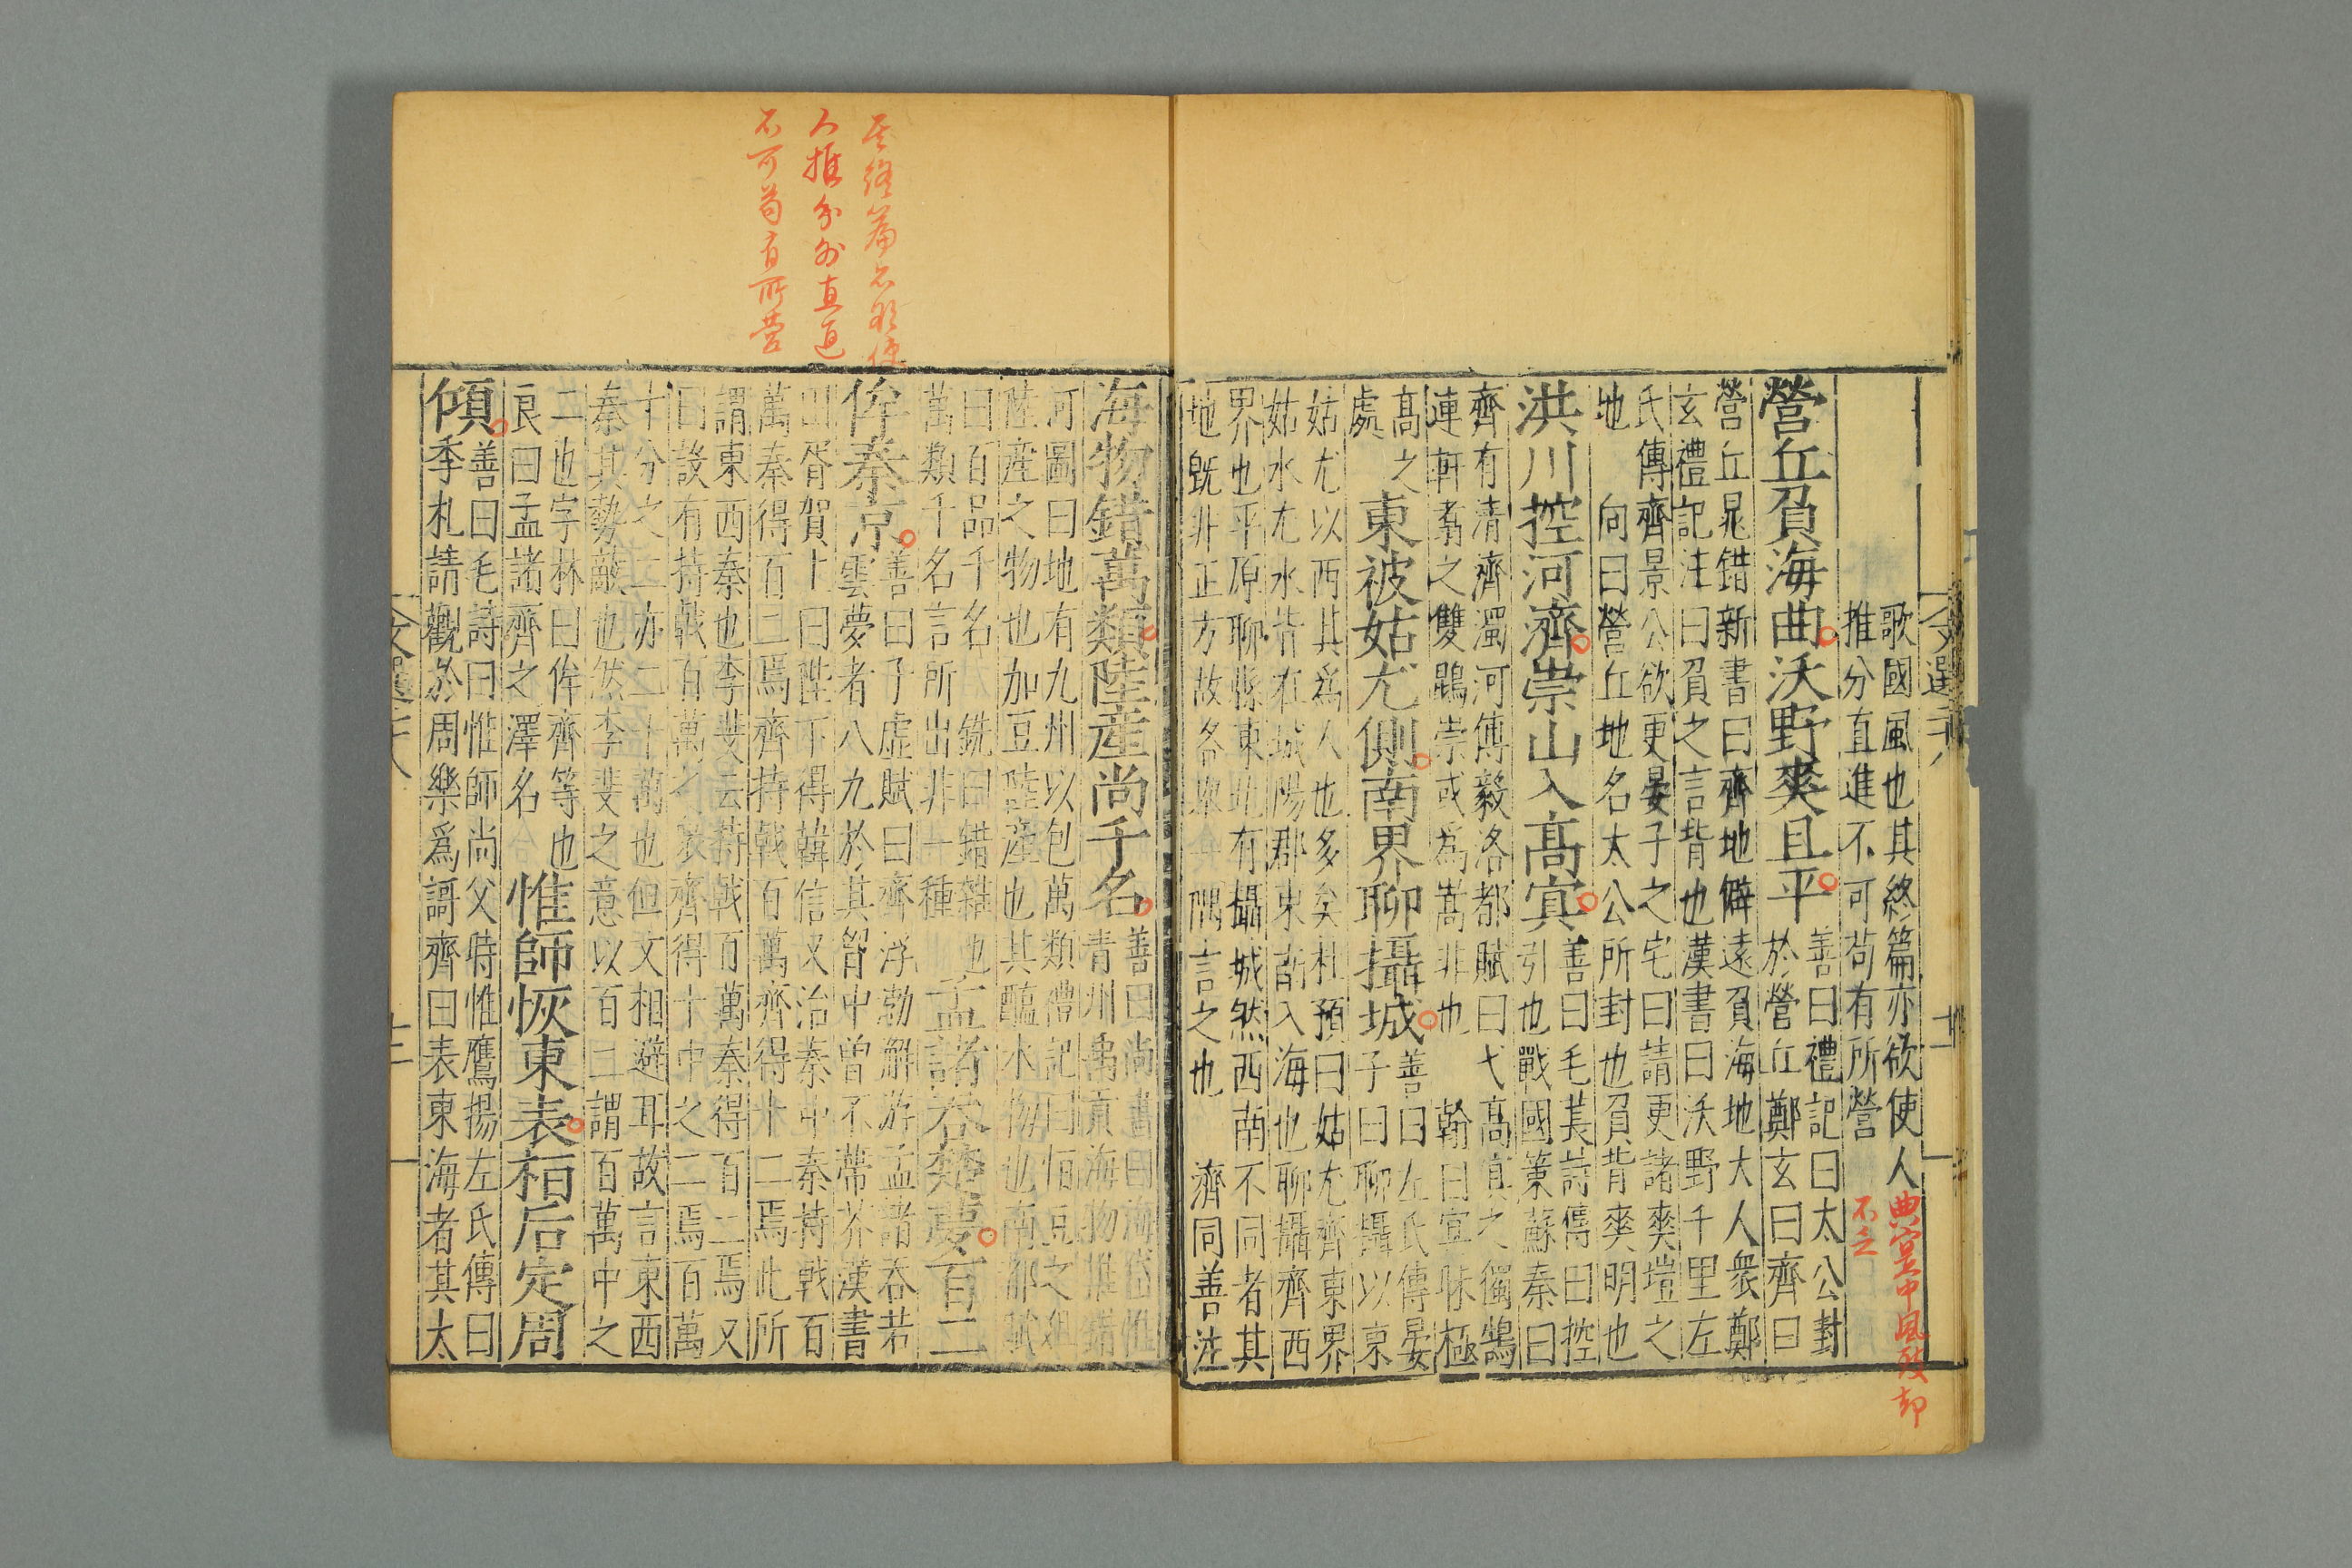 歌國風也其終篇亦欲使人
推分直進不可苟有所營
營丘負海曲沃野爽且平
善曰禮記曰太公封
於營丘鄭玄曰齊曰
營丘晁錯新書曰齊地僻遠負海地大人衆鄭
玄禮記注曰負之言背也漢書曰沃野千里左
氏傳齊景公欲更晏子之宅曰請更諸爽塏之
地 向曰營丘地名太公所封也負背爽明也
洪川控河濟崇山入高冥
善曰毛萇詩傳曰控
引也戰國策蘇秦曰
齊有清濟濁河傅毅洛都賦曰弋高冥之獨鵠
連軒翥之雙鵾崇或爲嵩非也 翰曰冥昧極
高之
處
東被姑尤側南界聊攝城
善曰左氏傳晏
子曰聊攝以東
姑尤以西其爲人也多矣杜預曰姑尤齊東界
姑水尤水皆在城陽郡東南入海也聊攝齊西
界也平原聊縣東北有攝城然西南不同者其
地旣非正方故各 隅言之也 濟同善注
文選二十八
十一
海物錯萬類陸産尚千名
善曰尚書曰海岱惟
青州禹貢海物惟錯
河圖曰地有九州以包萬類禮記曰恒豆之俎
陸産之物也加豆陸産也其醢水物也南都賦
曰百品千名 銑曰錯雜也
萬類千名言所出非一種
孟諸呑楚夢百二
侔秦京
善曰子虛賦曰齊浮勃澥游孟諸呑若
雲夢者八九於其胷中曾不蔕芥漢書
田肎賀上曰陛下得韓信又治秦中秦持戟百
萬秦得百二焉齊持戟百萬齊得十二焉此所
謂東西秦也李斐云持戟百萬秦得百二焉又
曰設有持戟百萬之衆齊得十中之二焉百萬
十分之二亦二十萬也但文相避耳故言東西
秦其勢敵也然李斐之意以百二謂百萬中之
二也字林曰侔齊等也
良曰孟諸齊之澤名
惟師恢東表桓后定周
傾
善曰毛詩曰惟師尚父時惟鷹揚左氏傳曰
季札請觀於周樂爲謌齊曰表東海者其太
其終篇亦欲使
人推分則直道
不可苟有所營
不之